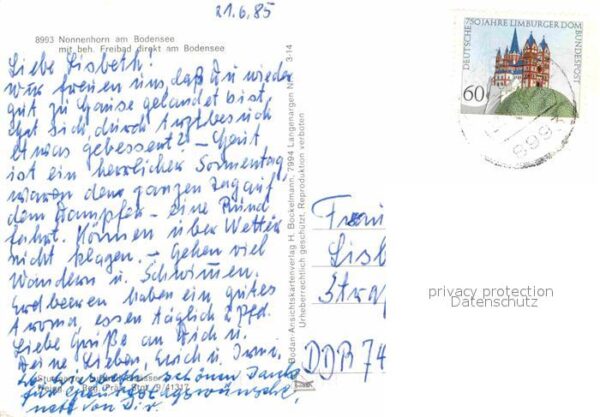 21.6.85
8993 Nonnenhorn am Bodensee
mit beh. Freibad direkt am Bodensee
Liebe Lisbeth!
wir freuen uns, daß Du wieder
gut zu Hause gelandet bist,
hat sich durch Arztbesuch
etwas gebessert? – Heut
ist ein herrlicher Sonnentag
waren den ganzen Tag auf
dem Dampfer – eine Rund
fahrt. Können über Wetter
nicht klagen. – Gehen viel
Wandern u. Schwimmen.
Erdbeeren haben ein gutes
Aroma, essen täglich 2 Pfd.
Liebe Grüße an Dich u.
Deine Lieben, Erich u. Irma.
schönen Dank
für Geburtstagswünsche,
nett von Dir.
Bodan-Ansichtskartenverlag H. Bockelmann, 7994 Langenargen 3-14
Urheberrechtlich geschützt, Reproduktion verboten
DEUTSCHE BUNDESPOST
750 JAHRE LIMBURGER DOM
60
Lisb
DDR 74
privacy protection
Datenschutz